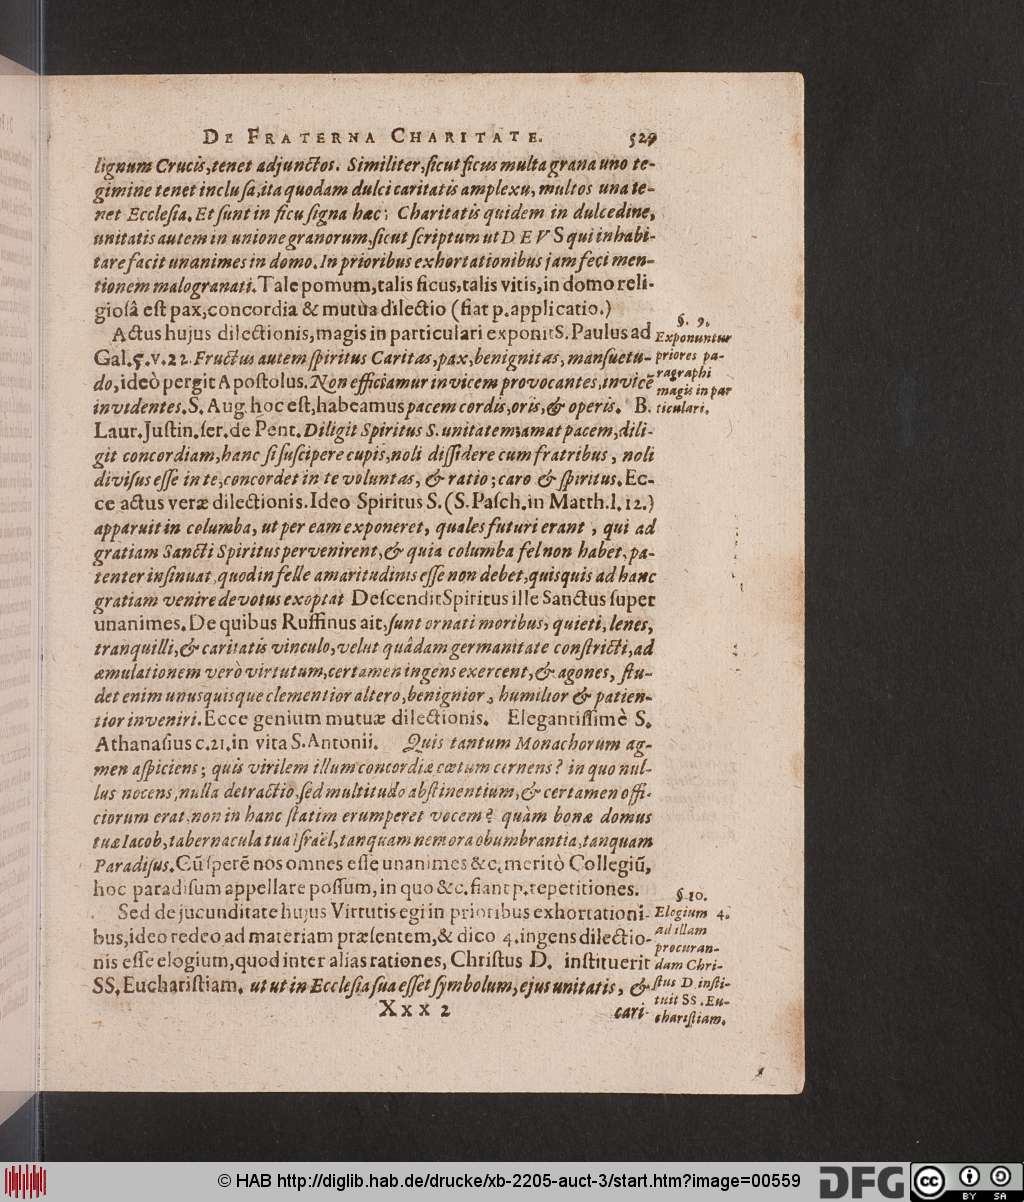 DE FRATERNA CHARITATE. 529
lignum Crucis,tenet adjunctos. Similiter,ſicut ficus multa grana uno te-
gimine tenet incluſa,ita quodam dulci caritatis amplexu, multos una te-
net Eccleſia. Et ſunt in ficu ſigna hæc: Charitatis quidem in dulcedine,
unitatis autem in unione granorum,ſicut ſcriptum ut DEVS qui inhabi-
tare facit unanimes in domo. In prioribus exhortationibus jam feci men-
tionem malogranati. Tale pomum,talis ficus,talis vitis,in domo reli-
gioſâ eſt pax,concordia & mutua dilectio (fiat p.applicatio.)
Actus hujus dilectionis,magis in particulari exponit S. Paulus ad
Gal.5.v.22. Fructus autem ſpiritus Caritas,pax,benignitas,manſuetu-
do,ideò pergit Apoſtolus. Non efficiamur invicem provocantes,invicē
invidentes. S. Aug. hoc eſt,habeamus pacem cordis,oris,& operis. B.
Laur.Juſtin.ſer.de Pent. Diligit Spiritus S. unitatem;amat pacem,dili-
git concordiam,hanc ſi ſuſcipere cupis,noli diſſidere cum fratribus, noli
diviſus eſſe in te,concordet in te voluntas, & ratio;caro & ſpiritus. Ec-
ce actus veræ dilectionis. Ideo Spiritus S. (S. Paſch.in Matth.l.12.)
apparuit in columba, ut per eam exponeret, quales futuri erant, qui ad
gratiam Sancti Spiritus pervenirent,& quia columba fel non habet,pa-
tenter inſinuat,quod in felle amaritudinis eſſe non debet,quisquis ad hanc
gratiam venire devotus exoptat Deſcendit Spiritus ille Sanctus ſuper
unanimes. De quibus Ruffinus ait, ſunt ornati moribus, quieti, lenes,
tranquilli,& caritatis vinculo,velut quâdam germanitate conſtricti,ad
æmulationem verò virtutum,certamen ingens exercent,& agones, ſtu-
det enim unusquisque clementior altero,benignior, humilior & patien-
tior inveniri. Ecce genium mutuæ dilectionis. Elegantiſſimè S.
Athanaſius c.21.in vita S. Antonii. Quis tantum Monachorum ag-
men aſpiciens; quis virilem illum concordiæ cœtum cernens? in quo nul-
lus nocens,nulla detractio,ſed multitudo abſtinentium,& certamen offi-
ciorum erat,non in hanc ſtatim erumperet vocem? quàm bonæ domus
tuæ Iacob,tabernacula tua Iſraël,tanquam nemora obumbrantia,tanquam
Paradiſus. Cũ ſperẽ nos omnes eſſe unanimes &c. meritò Collegiũ,
hoc paradiſum appellare poſſum, in quo &c. fiant p.repetitiones.
Sed de jucunditate hujus Virtutis egi in prioribus exhortationi-
bus,ideo redeo ad materiam præſentem,& dico 4.ingens dilectio-
nis eſſe elogium,quod inter alias rationes, Chriſtus D. inſtituerit
SS. Euchariſtiam, ut ut in Eccleſia ſua eſſet ſymbolum,ejus unitatis, &
Xxx 2 cari-
§. 9.
Exponuntur
priores pa-
ragraphi
magis in par
ticulari.
§.10.
Elogium 4.
ad illam
procuran-
dam Chri-
ſtus D. inſti-
tuit SS. Eu-
chariſtiam.
© HAB http://diglib.hab.de/drucke/xb-2205-auct-3/start.htm?image=00559
DFG
cc BY SA